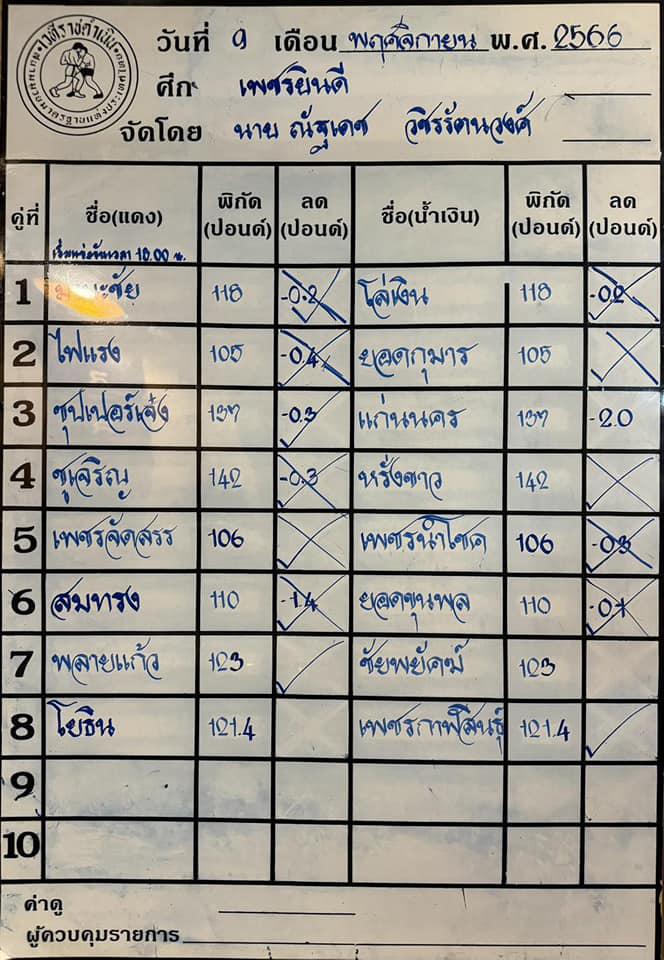 เวทีราชดำเนิน
วันที่ 9 เดือน พฤศจิกายน พ.ศ. 2566
ศึก เพชรยินดี
จัดโดย นาย ณัฐเดช วชิรรัตนวงศ์
คู่ที่ ชื่อ(แดง) พิกัด (ปอนด์) ลด (ปอนด์) ชื่อ(น้ำเงิน) พิกัด (ปอนด์) ลด (ปอนด์)
เริ่มแข่งขันเวลา 18.00 น.
1 118 -0.2 โล่เงิน 118 -0.2
2 ไฟแรง 105 -0.4 ยอดกุมาร 105
3 ซุปเปอร์เจ้ง 137 -0.3 แก่นนคร 137 -2.0
4 ชูเจริญ 142 -0.3 หรั่งขาว 142
5 เพชรจัดสรร 106 เพชรนำโชค 106 -0.3
6 สมทรง 110 -1.4 ยอดขุนพล 110 -0.1
7 พลายแก้ว 123 ชัยพยัคฆ์ 123
8 โยธิน 121.4 เพชรกาฬสินธุ์ 121.4
9
10
ค่าดู
ผู้ควบคุมรายการ